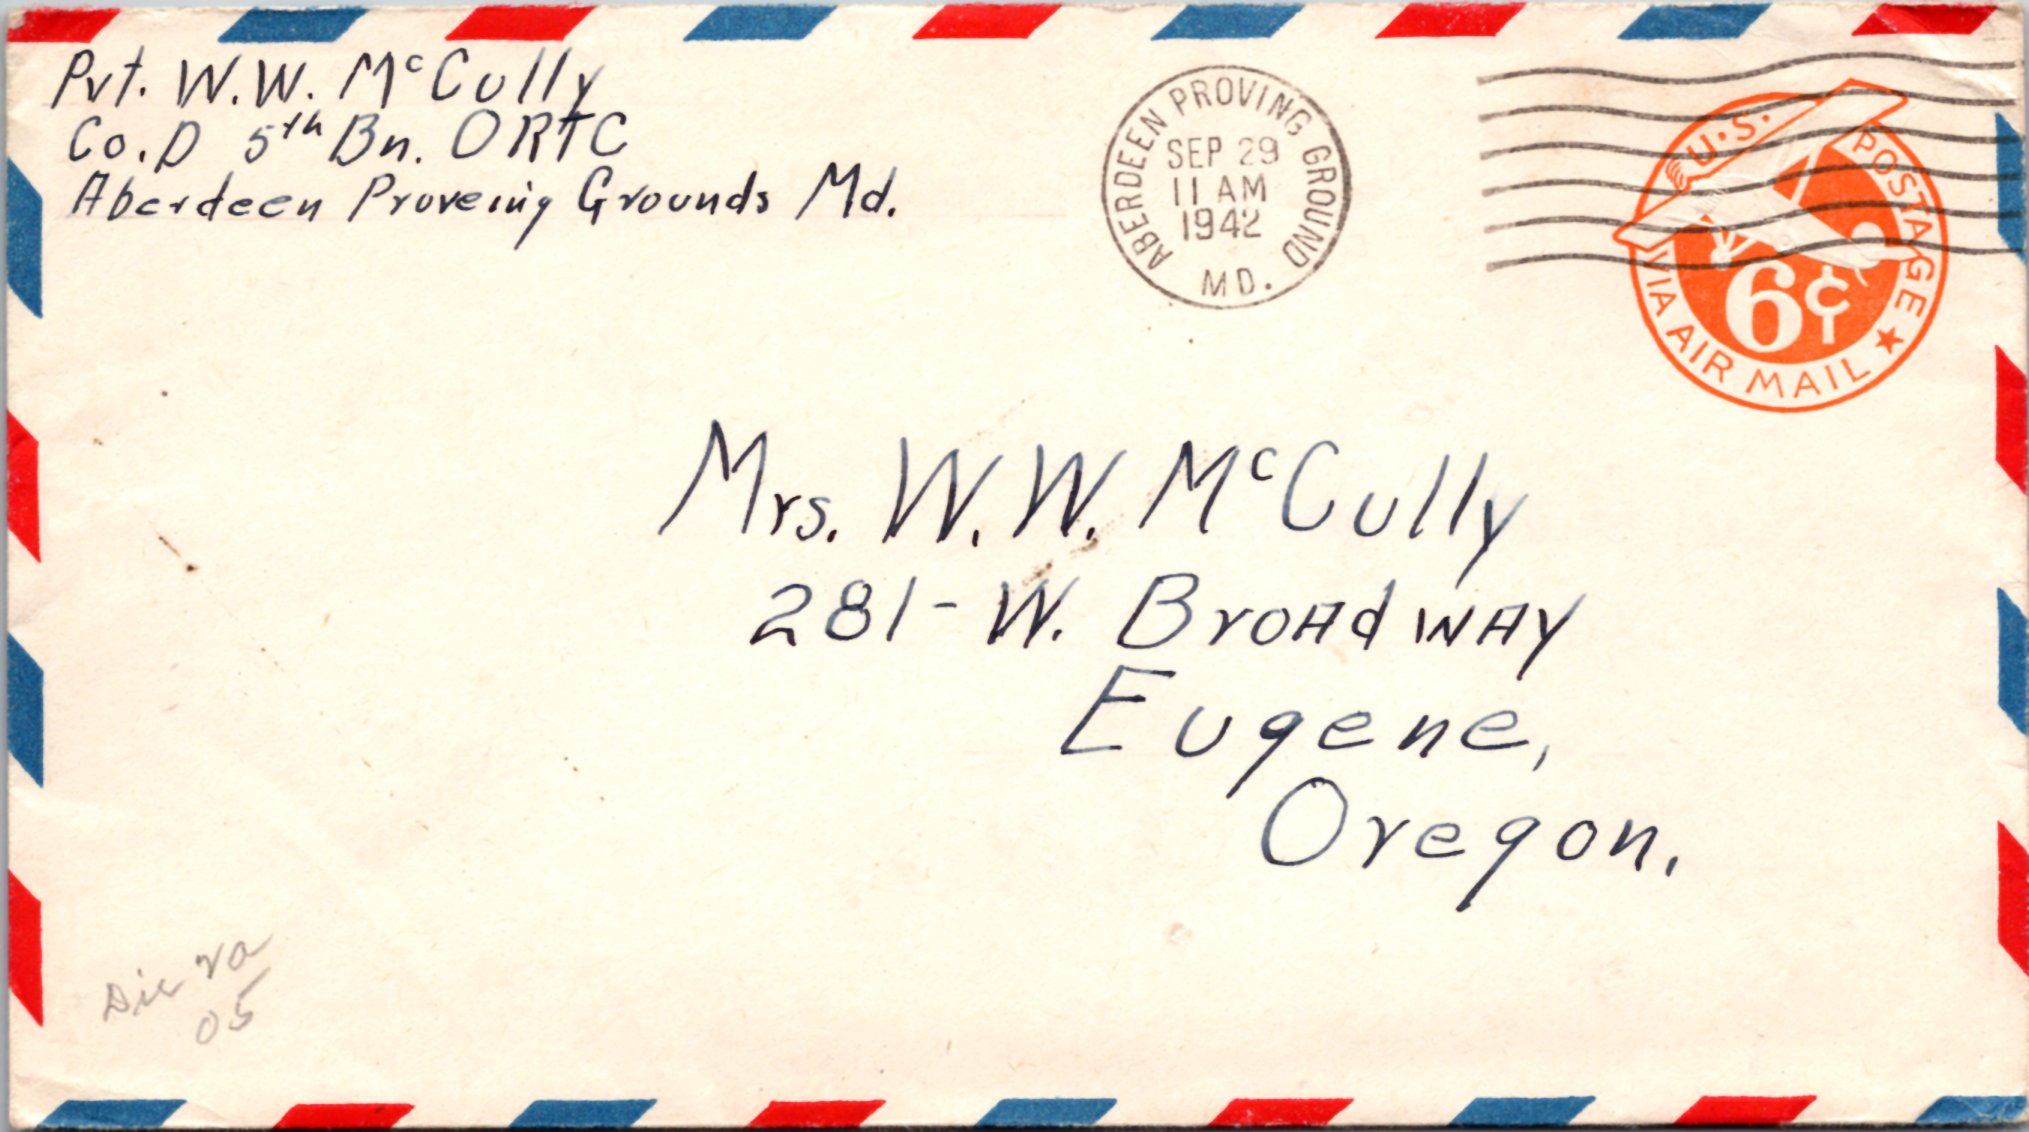 Pvt. W.W. McCully
Co. D 5th Bn. ORTC
Aberdeen Proveing Grounds Md.
ABERDEEN PROVING GROUND
SEP 29
11 AM
1942
MD.
U.S. POSTAGE
6¢
VIA AIR MAIL
Mrs. W.W. McCully
281-W. Broadway
Eugene,
Oregon.
05